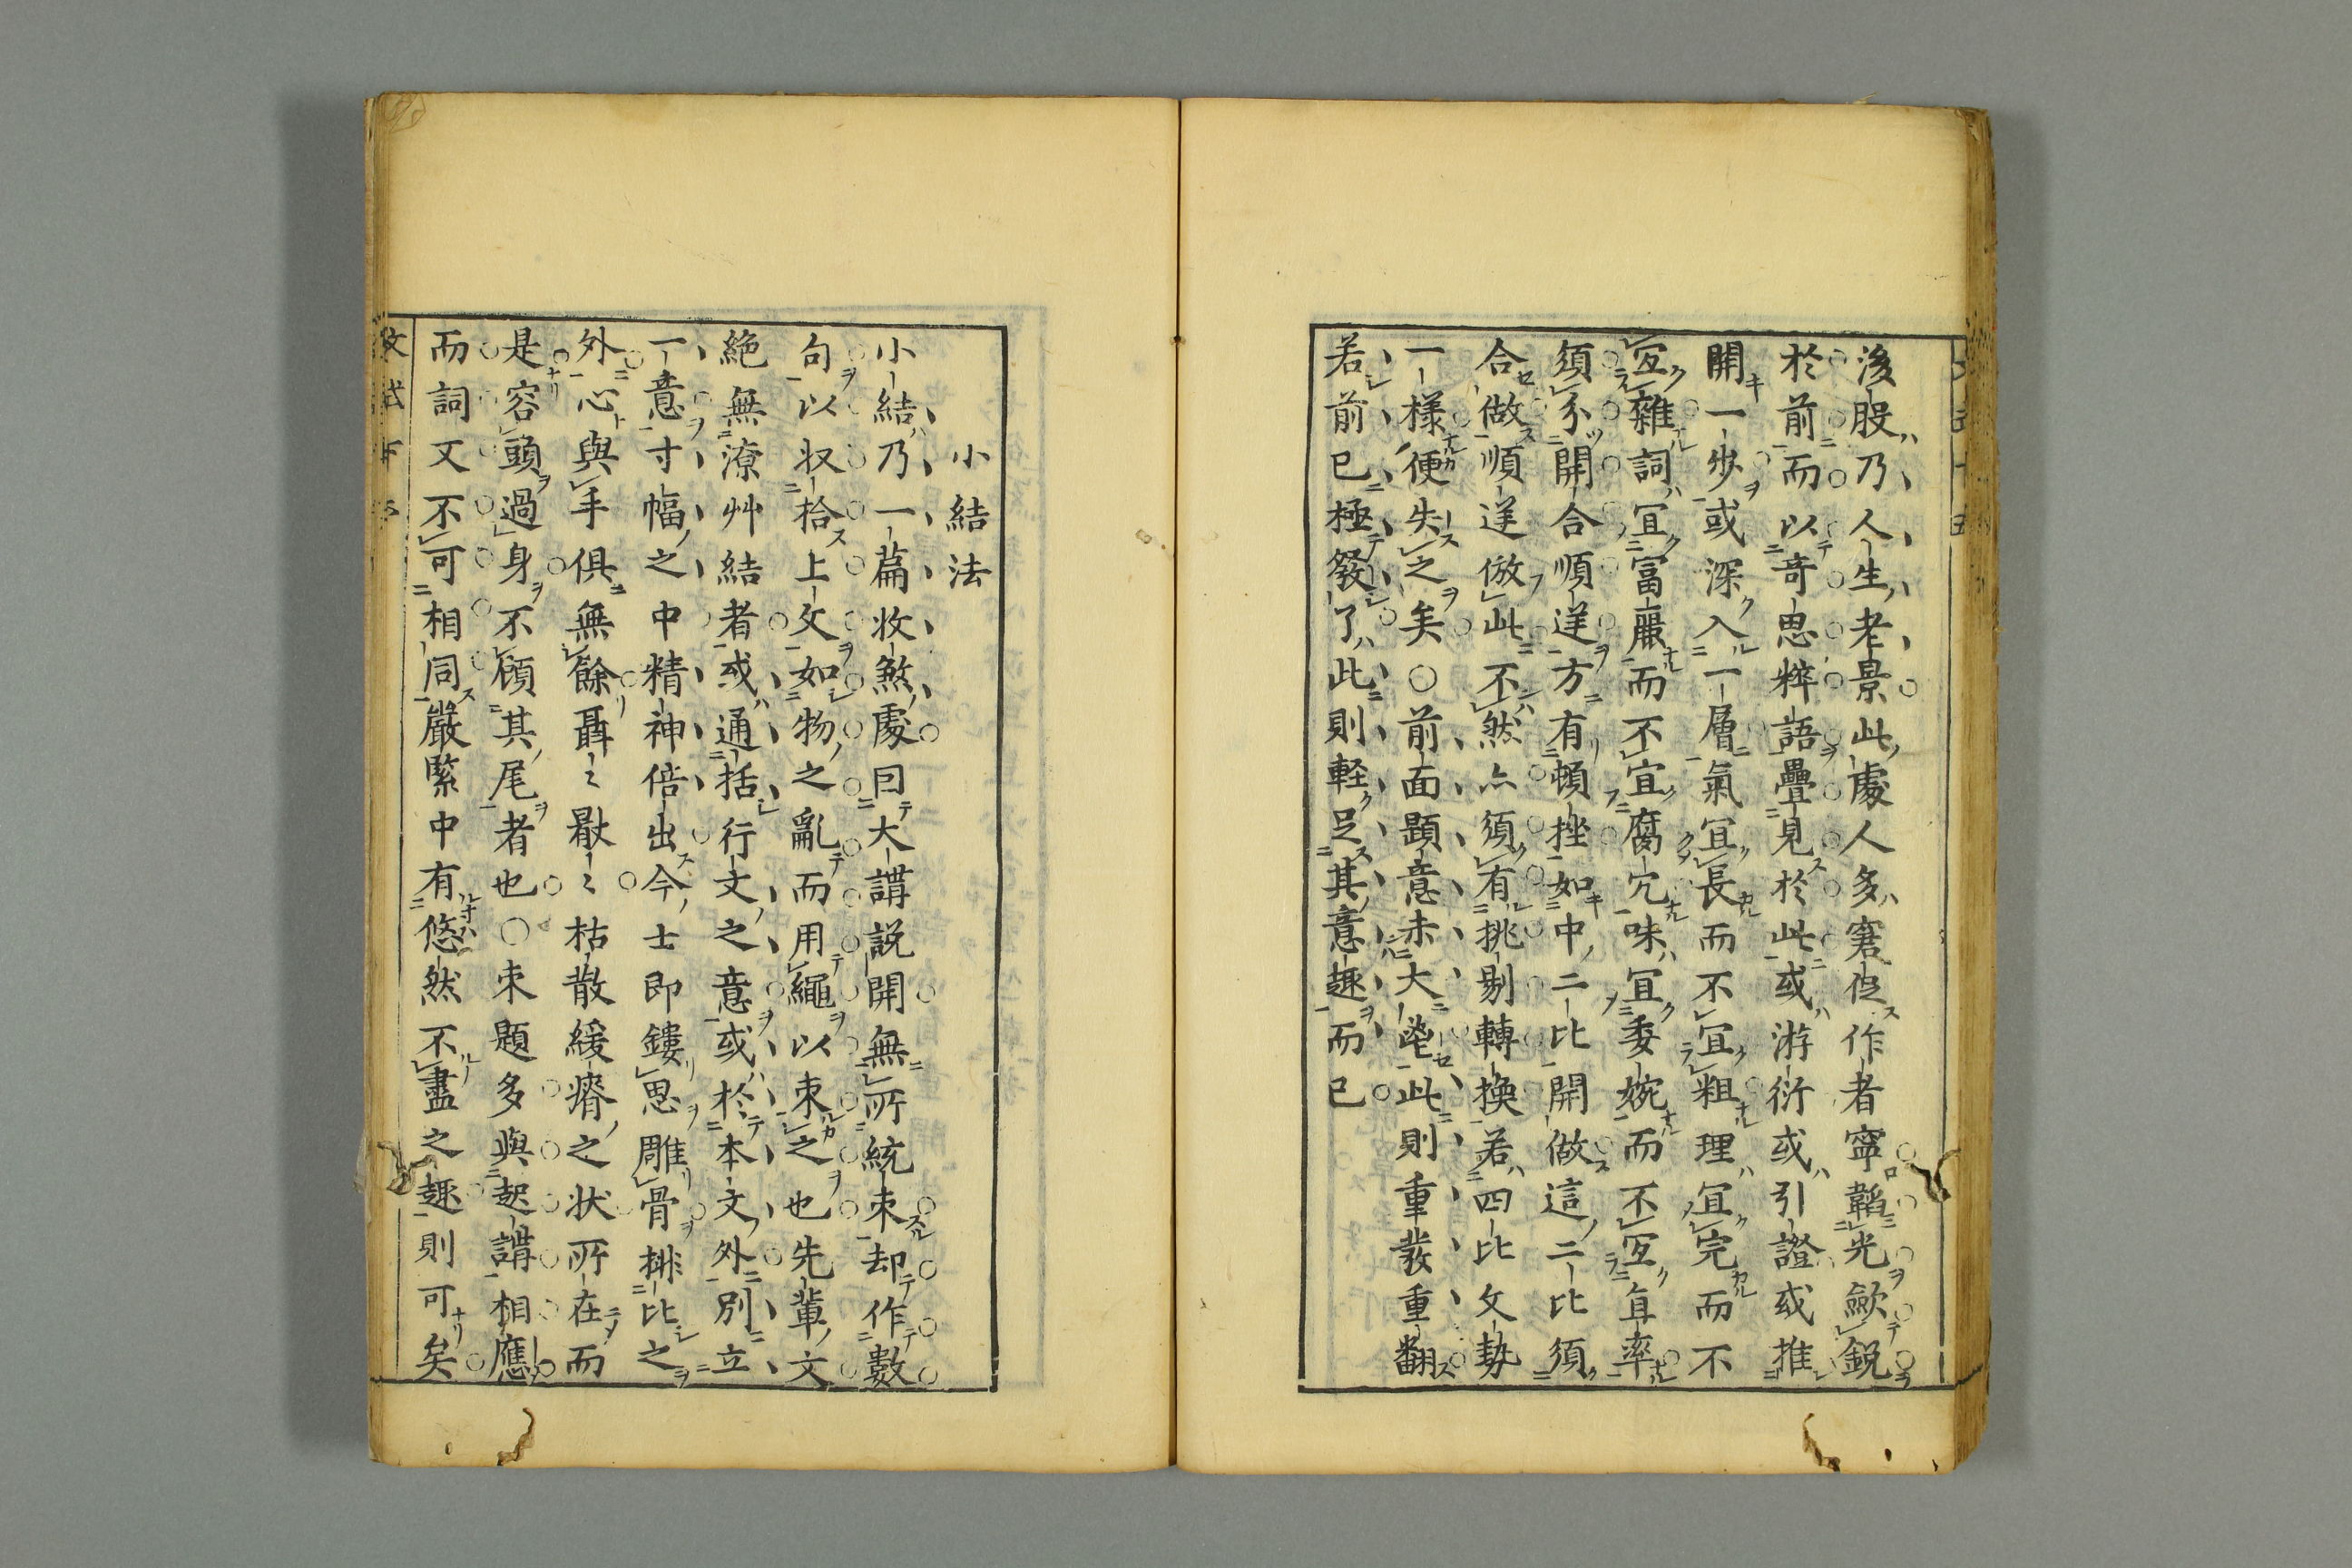 後股乃人生老景此處人多窘促作者寧韜光歛鋭
於前而以竒思粹語疊見於此或游衍或引證或推
開一步或深入一層氣宜長而不宜粗理宜完而不
宜雜詞宜富麗而不宜腐冗味宜委婉而不宜直率
須分開合順逆方有頓挫如中二比開做這二比須
合做順逆倣此不然亦須有挑剔轉換若四比文勢
一樣便失之矣○前面題意未大發此則重發重翻
若前已極發了此則軽足其意趣而已
小結法
小結乃一篇收煞處曰大講説開無所統束却作數
句以収拾上文如物之亂而用繩以束之也先輩文
絶無潦艸結者或通括行文之意或於本文外別立
一意寸幅之中精神倍出今士即鏤思雕骨排比之
外心與手俱無餘聶〻厭〻枯散緩瘠之状所在而
是容頭過身不顧其尾者也○束題多與起講相應
而詞又不可相同嚴緊中有悠然不盡之趣則可矣